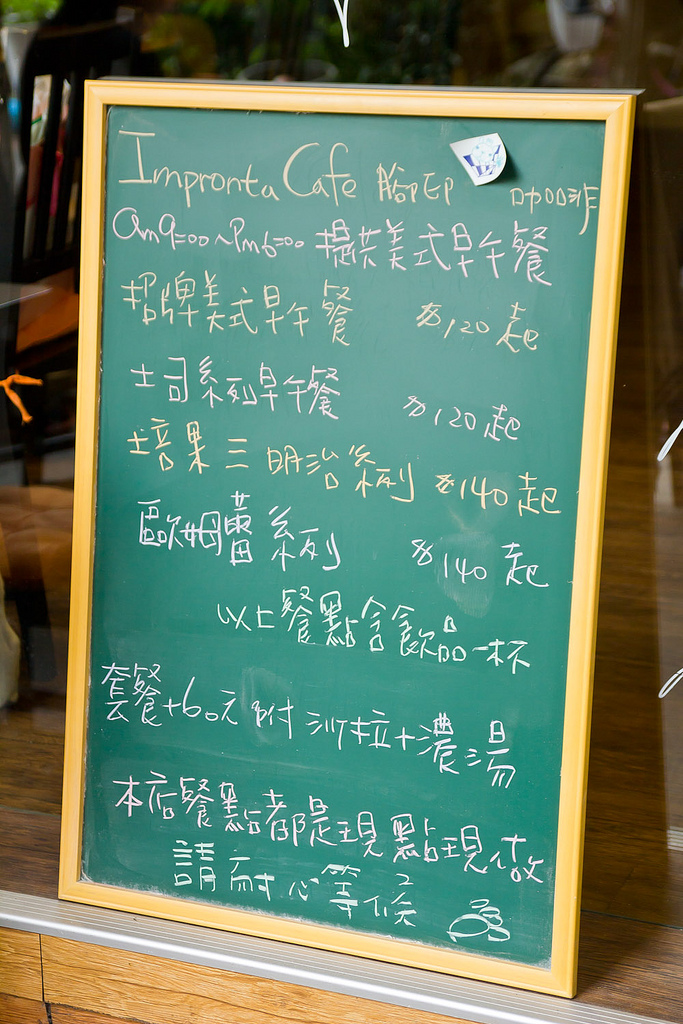 Impronta Cafe 腳印 咖啡
am9:00~Pm6:00 提供美式早午餐
招牌美式早午餐 $120起
土司系列早午餐 $120起
培果三明治系列 $140起
歐姆蕾系列 $140起
以上餐點含飲品一杯
套餐+60元 附沙拉+濃湯
本店餐點都是現點現做
請耐心等候